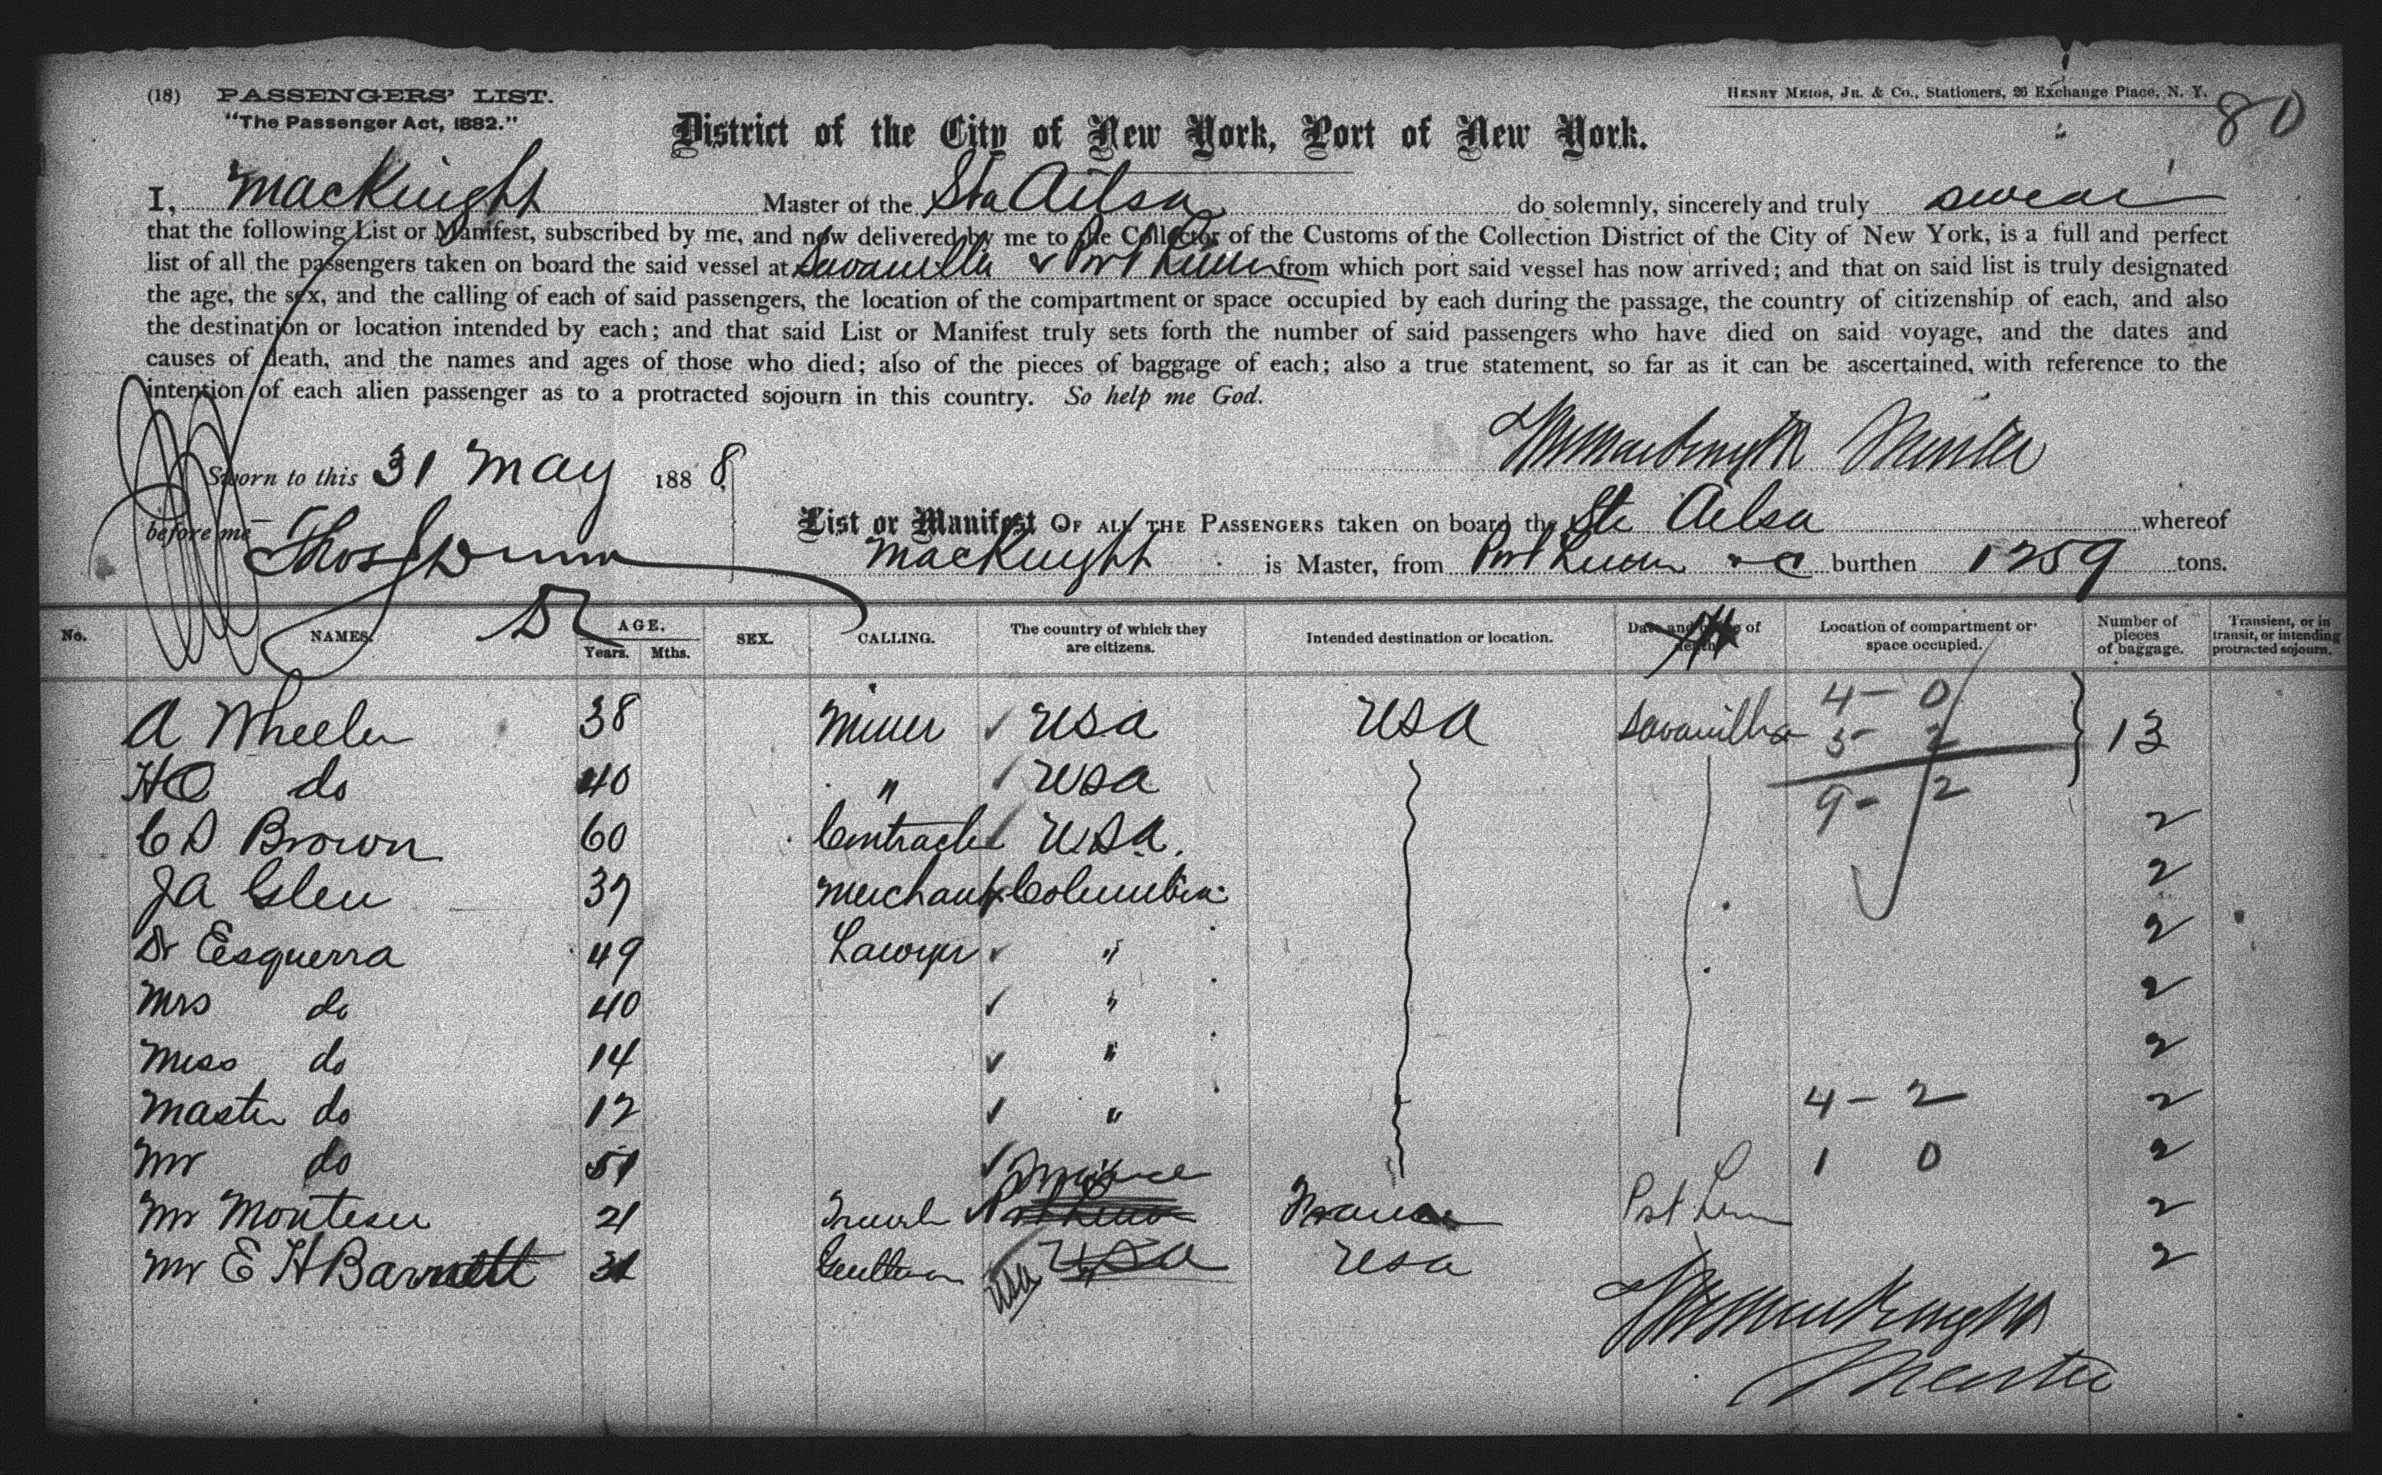 (18) PASSENGERS' LIST.
"The Passenger Act, 1882."
HENRY MEIGS, JR. & CO., Stationers, 26 Exchange Place, N. Y.
80
District of the City of New York, Port of New York.
I, MacKnight Master of the Str Ailsa do solemnly, sincerely and truly swear
that the following List or Manifest, subscribed by me, and now delivered by me to the Collector of the Customs of the Collection District of the City of New York, is a full and perfect
list of all the passengers taken on board the said vessel at Savanilla & Port Limon from which port said vessel has now arrived; and that on said list is truly designated
the age, the sex, and the calling of each of said passengers, the location of the compartment or space occupied by each during the passage, the country of citizenship of each, and also
the destination or location intended by each; and that said List or Manifest truly sets forth the number of said passengers who have died on said voyage, and the dates and
causes of death, and the names and ages of those who died; also of the pieces of baggage of each; also a true statement, so far as it can be ascertained, with reference to the
intention of each alien passenger as to a protracted sojourn in this country. So help me God.
Master
Sworn to this 31 May 1888
before me Thos Dunn
List or Manifest OF ALL THE PASSENGERS taken on board the Str Ailsa whereof
MacKnight is Master, from Port Limon &c burthen 1259 tons.
No. NAMES. AGE. Years. Mths. SEX. CALLING. The country of which they are citizens. Intended destination or location. Date and cause of death. Location of compartment or space occupied. Number of pieces of baggage. Transient, or in transit, or intending protracted sojourn.
A Wheeler 38 Miner USA USA Savanilla 4 - 0 13
5 - 2
HO do 40 " USA 9 - 2
C D Brown 60 Contractor USA. 2
JA Glen 37 Merchant Columbia 2
Dr Esquerra 49 Lawyer " 2
Mrs do 40 " 2
Miss do 14 " 2
Master do 12 " 4 - 2 2
Mr do 51 " 1 0 2
France
Mr 21 Port Limon France Port Limon 2
Mr E H Barnett 31 Gentleman USA USA 2
USA
Master